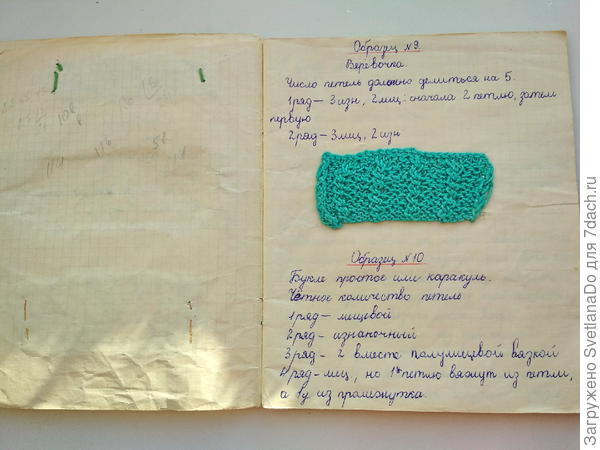 Образец №9.
Веревочка.
Число петель должно делиться на 5.
1 ряд — 3 изн, 2 лиц: сначала 2 петлю, затем
первую
2 ряд — 3 лиц, 2 изн
Образец №10
Букле простое или каракуль.
Чётное количество петель
1 ряд — лицевой
2 ряд — изнаночный
3 ряд - 2 вместе полулицевой вязкой
4 ряд - лиц, но 1ю петлю вяжут из петли,
а 1у из промежутка.
Загружено SvetlanaDo для 7dach.ru